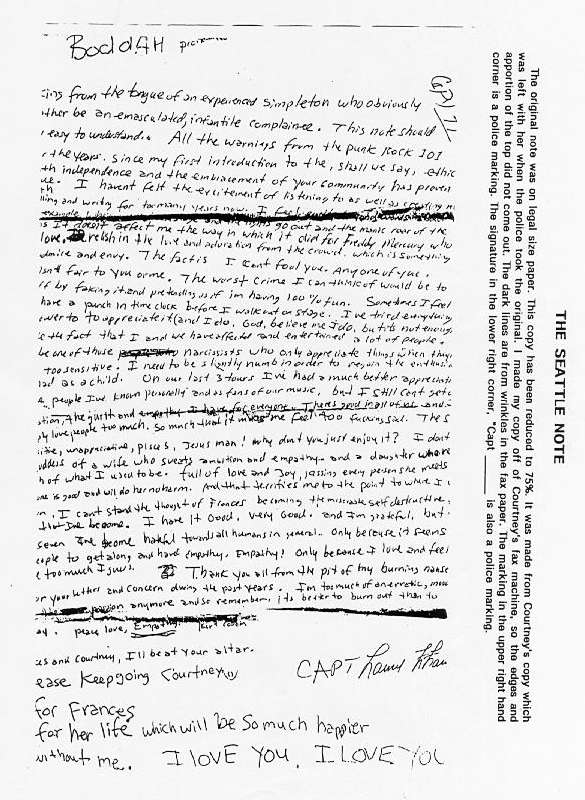 BoddAH
ing from the tongue of an experienced simpleton who obviously
ther be an emasculated, infantile complainee. This note should
easy to understand. All the warnings from the punk Rock 101
the years. Since my first introduction to the, shall we say, ethic
th independence and the embracement of your community has proven
ue. I havent felt the excitement of listening to as well as creating m
ing and writing for too many years now. I feel
go out and the manic roar of the
doesnt affect me the way in which it did for Freddy Mercury who
love, relish in the love and adoration from the crowd. which is Something
dmire and envy. The fact is I Cant fool you. Any one of you.
isnt fair to you or me. The worst Crime I can think of would be to
ff by faking it and pretending as if im having 100% fun. Sometimes I feel
have a punch in time clock before I walk out on stage. I've tried everything
ower to appreciate it (and I do, God, believe me I do, but its not enough
the fact that I and we have affected and entertained a lot of people.
be one of those narcissists who only appreciate things when they
too sensitive. I need to be slightly numb in order to regain the enthusia
had as a child. On our last 3 tours I've had a much better appreciati
people I've known personally and as fans of our music, but I still Cant get o
ation, the guilt and empathy I have for everyone. Theres good in all of us and
ply love people too much. So much that it makes me feel too fucking sad. The s
itive, unappreciative, pisces, Jesus man! why dont you just enjoy it? I dont
oddess of a wife who sweats ambition and empathy. and a daughter who re
h of what I used to be. full of love and Joy, kissing every person she meets
one is good and will do her no harm. And that terrifies me to the point to where I c
n. I cant stand the thought of Frances becoming the miserable self destructive,
that Ive become. I have it Good, very Good. and I'm grateful, but
seven Ive become hateful towards all humans in general. Only because it seems
eople to get along and have Empathy. Empathy! Only because I love and feel
e too much I guess. Thank you all from the pit of my burning nause
or your letters and concern during the past years. I'm too much of an erratic, moo
passion anymore and so remember, its better to burn out than to
ay. peace love, Empathy. Kurt Cobain
ces and Courtney, I'll be at your altar.
ease Keep going Courtney,
for Frances
for her life which will be so much happier
without me. I LOVE YOU. I LOVE YOU
CAPT
THE SEATTLE NOTE
The original note was on legal size paper. This copy has been reduced to 75%. It was made from Courtney's copy which
was left with her when the police took the original. I made my copy off of Courtney's fax machine, so the edges and
apportion of the top did not come out. The dark lines are from winkles in the fax paper. The marking in the upper right hand
corner is a police marking. The signature in the lower right corner, "Capt ______ is also a police marking.